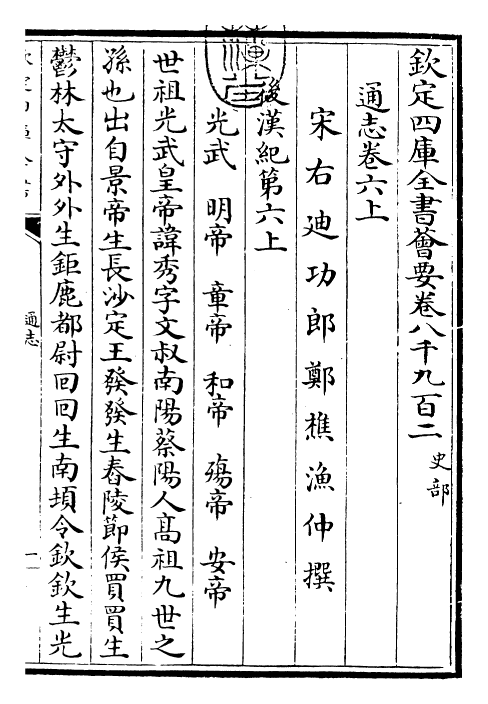 欽定四庫全書薈要卷八千九百二
史部
通志卷六上
宋右迪功郎鄭樵漁仲撰
後漢紀第六上
光武 明帝 章帝 和帝 殤帝 安帝
世祖光武皇帝諱秀字文叔南陽蔡陽人髙祖九世之
孫也出自景帝生長沙定王發發生舂陵節侯買買生
鬱林太守外外生鉅鹿都尉回回生南頓令欽欽生光
通志
一